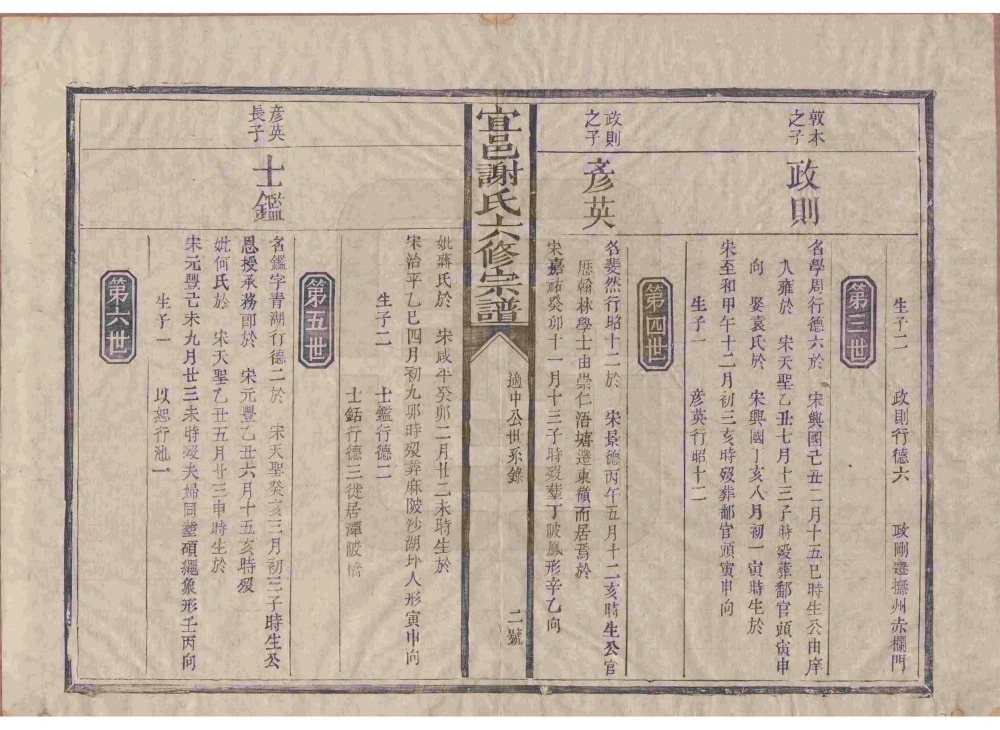 生子二 政則行德六 政剛遷撫州赤欄門
第三世
敦本
之子
政則
名學周行德六於 宋興國己丑二月十五巳時生公由庠
入雍於 宋天聖乙丑七月十三子時歿葬鄱官頭寅申
向 娶袁氏於 宋興國丁亥八月初一寅時生於
宋至和甲午十二月初三亥時歿葬鄱官頭寅申向
生子一 彥英行昭十二
第四世
政則
之子
彥英
名斐然行昭十二於 宋景德丙午五月十二亥時生公官
歷翰林學士由崇仁浯塘遷東嶺而居焉於
宋嘉祐癸卯十一月十三子時歿葬丁陂鳳形辛乙向
宜邑謝氏六修宗譜
適中公世系錄
二號
妣蔣氏於 宋咸平癸卯二月廿二未時生於
宋治平乙巳四月初九卯時歿葬麻陂沙湖坽人形寅申向
生子二 士鑑行德二
士銛行德三徙居潭陂橋
第五世
彥英
長子
士鑑
名鑑字青湖行德二於 宋天聖癸亥三月初三子時生公
恩授承務郎於 宋元豐乙丑六月十五亥時歿
妣何氏於 宋天聖乙丑五月廿三申時生於
宋元豐己未九月廿三未時歿夫婦同塟碩繩象形壬丙向
生子一 以恕行池一
第六世